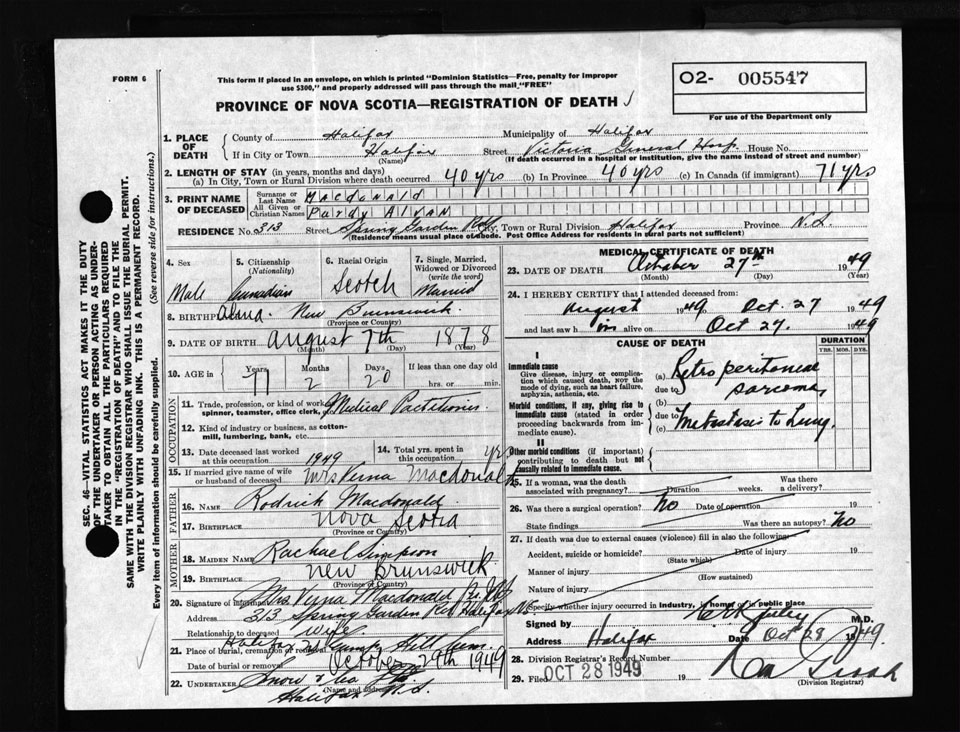 FORM 6
This form if placed in an envelope, on which is printed "Dominion Statistics—Free, penalty for improper
use $300," and properly addressed will pass through the mail "FREE"
O2- 005547
For use of the Department only
PROVINCE OF NOVA SCOTIA—REGISTRATION OF DEATH
1. PLACE OF DEATH
County of Halifax Municipality of Halifax
If in City or Town Halifax (Name) Street Victoria General Hosp. House No.
(If death occurred in a hospital or institution, give the name instead of street and number)
2. LENGTH OF STAY (in years, months and days)
(a) In City, Town or Rural Division where death occurred 40 yrs (b) In Province 40 yrs (c) In Canada (if immigrant) 71 yrs
3. PRINT NAME OF DECEASED
Surname or Last Name Macdonald
All Given or Christian Names Purdy Allan
RESIDENCE No. 313 Street Spring Garden Rd City, Town or Rural Division Halifax Province N.S.
(Residence means usual place of abode. Post Office Address for residents in rural parts not sufficient)
4. Sex Male
5. Citizenship (Nationality) Canadian
6. Racial Origin Scotch
7. Single, Married, Widowed or Divorced (write the word) Married
8. BIRTHPLACE Alma. New Brunswick.
(Province or Country)
9. DATE OF BIRTH August 7th 1878
(Month) (Day) (Year)
10. AGE in Years 71 Months 2 Days 20 If less than one day old
hrs. or min.
OCCUPATION
11. Trade, profession, or kind of work as spinner, teamster, office clerk, Medical Practitioner
12. Kind of industry or business, as cotton-mill, lumbering, bank, etc.
13. Date deceased last worked at this occupation 1949
14. Total yrs. spent in this occupation yrs
15. If married give name of wife or husband of deceased Mrs Verna Macdonald
FATHER
16. NAME Rodrick Macdonald
17. BIRTHPLACE Nova Scotia
(Province or Country)
MOTHER
18. MAIDEN NAME Rachael Simpson
19. BIRTHPLACE New Brunswick
(Province or Country)
20. Signature of informant Mrs. Verna Macdonald
Address 313 Spring Garden Rd Halifax
Relationship to deceased wife
21. Place of burial, cremation or removal Halifax Camp Hill Cem.
Date of burial or removal October 29th 1949
22. UNDERTAKER Snow & Co
(Name and address)
Halifax N.S.
MEDICAL CERTIFICATE OF DEATH
23. DATE OF DEATH October 27th 1949
(Month) (Day) (Year)
24. I HEREBY CERTIFY that I attended deceased from:
August 1949 Oct. 27 1949
and last saw him alive on Oct 27. 1949
CAUSE OF DEATH
DURATION
YRS. MOS. DYS.
I
Immediate cause
Give disease, injury or complication which caused death, NOT the mode of dying, such as heart failure, asphyxia, asthenia, etc.
(a) Retroperitoneal
due to sarcoma,
Morbid conditions, if any, giving rise to immediate cause (stated in order proceeding backwards from immediate cause).
(b)
due to
(c) Metastasis to Lung.
II
Other morbid conditions (if important) contributing to death but not causally related to immediate cause.
25. If a woman, was the death associated with pregnancy? Duration weeks. Was there a delivery?
26. Was there a surgical operation? No Date of operation 19
State findings Was there an autopsy? No
27. If death was due to external causes (violence) fill in also the following:
Accident, suicide or homicide? (State which) Date of injury 19
Manner of injury
(How sustained)
Nature of injury
Specify whether injury occurred in industry, in home or in public place
Signed by M.D.
Address Halifax Date Oct 28 1949.
28. Division Registrar's Record Number
29. Filed OCT 28 1949 19
(Division Registrar)
SEC. 46—VITAL STATISTICS ACT MAKES IT THE DUTY
OF THE UNDERTAKER OR PERSON ACTING AS UNDERTAKER TO OBTAIN ALL THE PARTICULARS REQUIRED
IN THE "REGISTRATION OF DEATH" AND TO FILE THE
SAME WITH THE DIVISION REGISTRAR WHO SHALL ISSUE THE BURIAL PERMIT.
WRITE PLAINLY WITH UNFADING INK. THIS IS A PERMANENT RECORD.
Every item of information should be carefully supplied. (See reverse side for instructions.)